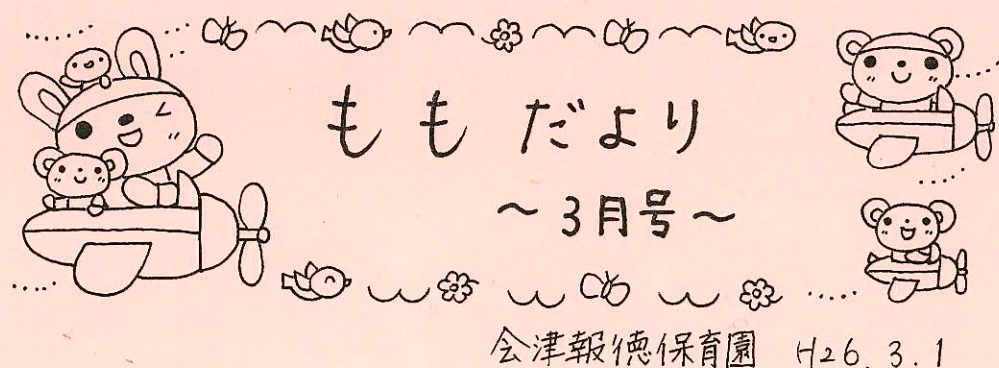 ももだより
～3月号～
会津報徳保育園 H26.3.1